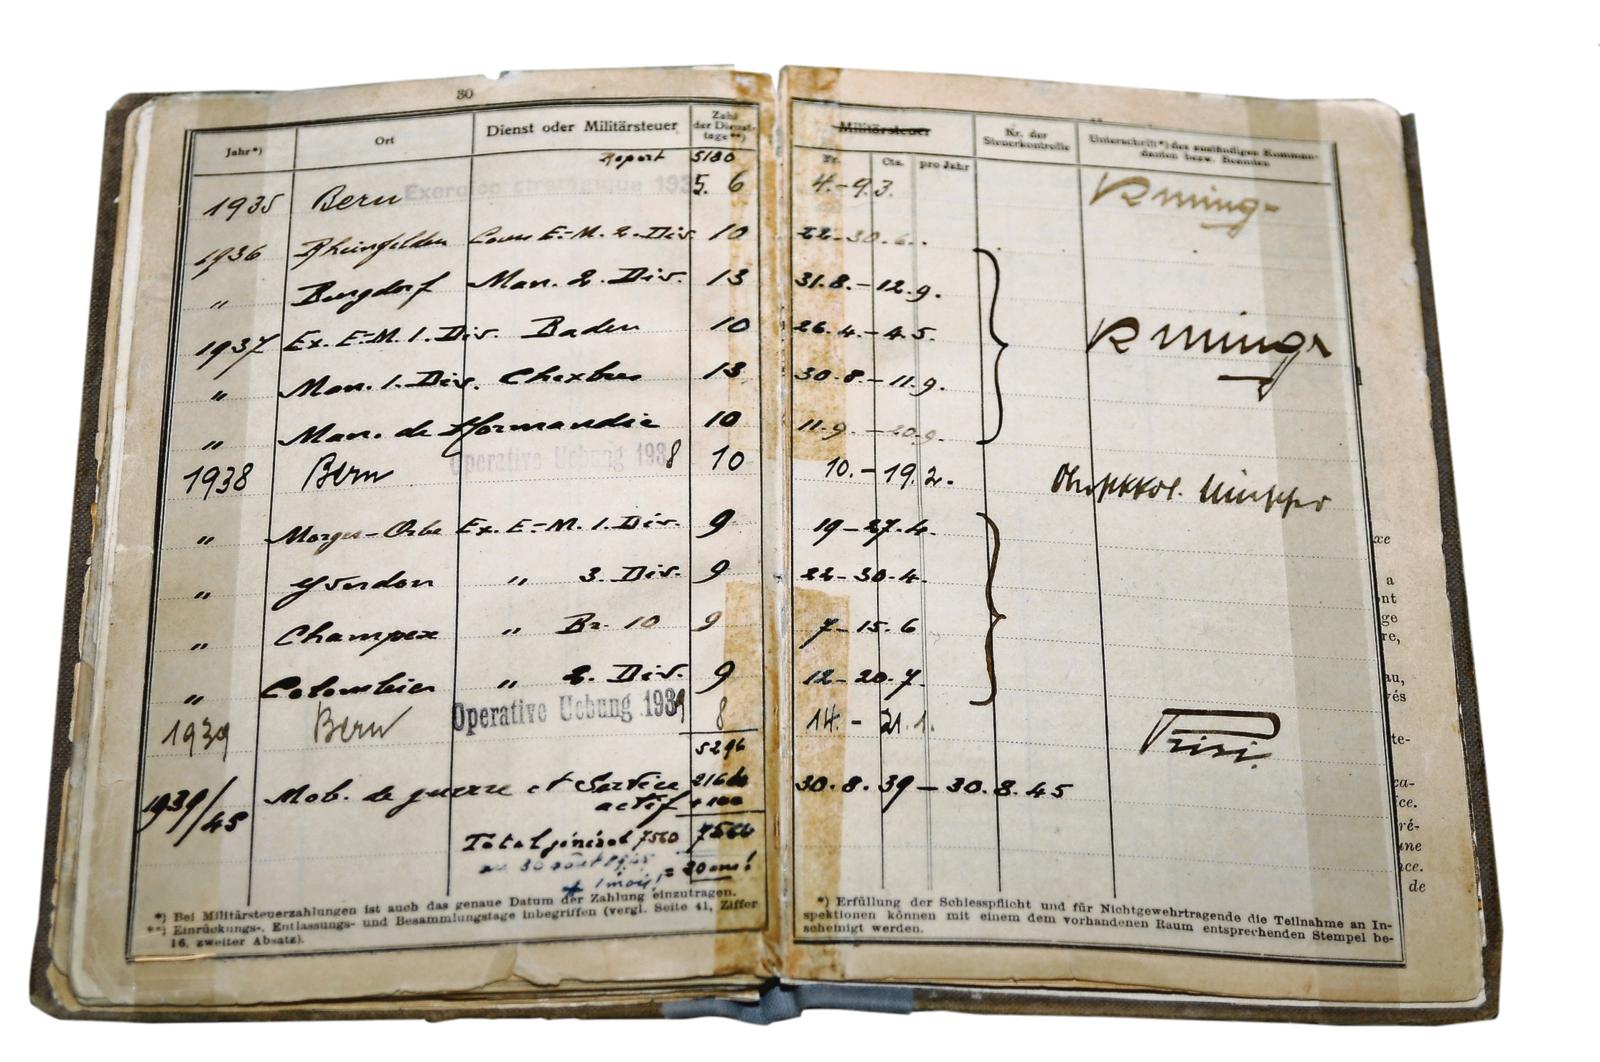 30
Jahr*) Ort Dienst oder Militärsteuer Zahl der Diensttage**) Militärsteuer Fr. Cts. pro Jahr Nr. der Steuerkontrolle Unterschrift*) des zuständigen Kommandanten bezw. Beamten
Report 5180
1935 Bern Exercice stratégique 193 5. 6 4.-9.3. R Minger
1936 Rheinfelden Cours E.-M. 2. Div. 10 22-30.6.
" Burgdorf Man. 2. Div. 13 31.8.-12.9.
1937 Ex. E-M. 1. Div. Baden 10 26.4.-4.5. R Minger
" Man. 1. Div. Chexbres 13 30.8.-11.9.
" Man. de Normandie 10 11.9.-20.9.
1938 Bern Operative Uebung 1938 10 10.-19.2.
" Morges-Orbe Ex. E.-M. 1. Div. 9 19-27.4.
" Yverdon " 3. Div. 9 22-30.4.
" Champex " Br. 10 9 7-15.6
" Colombier " 2. Div. 9 12-20.7.
1939 Bern Operative Uebung 1939 8 14.-21.1. Prisi.
5296
1939/45 Mob. de guerre et Service actif 30.8.39 - 30.8.45
Total général 7560
au 30 août 1945
+ 1 mois! = 20 ans!
*) Bei Militärsteuerzahlungen ist auch das genaue Datum der Zahlung einzutragen.
**) Einrückungs-, Entlassungs- und Besammlungstage inbegriffen (vergl. Seite 41, Ziffer
16, zweiter Absatz).
*) Erfüllung der Schiesspflicht und für Nichtgewehrtragende die Teilnahme an In-
spektionen können mit einem dem vorhandenen Raum entsprechenden Stempel be-
scheinigt werden.